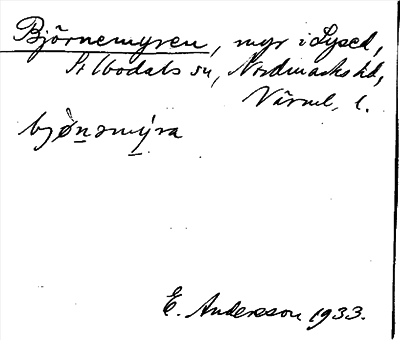 Björnemyren, myr i Lysed,
Blbodals sn, Nordmarks hd,
Värml. l.
bjö̀nəmýra
E. Andersson 1933.